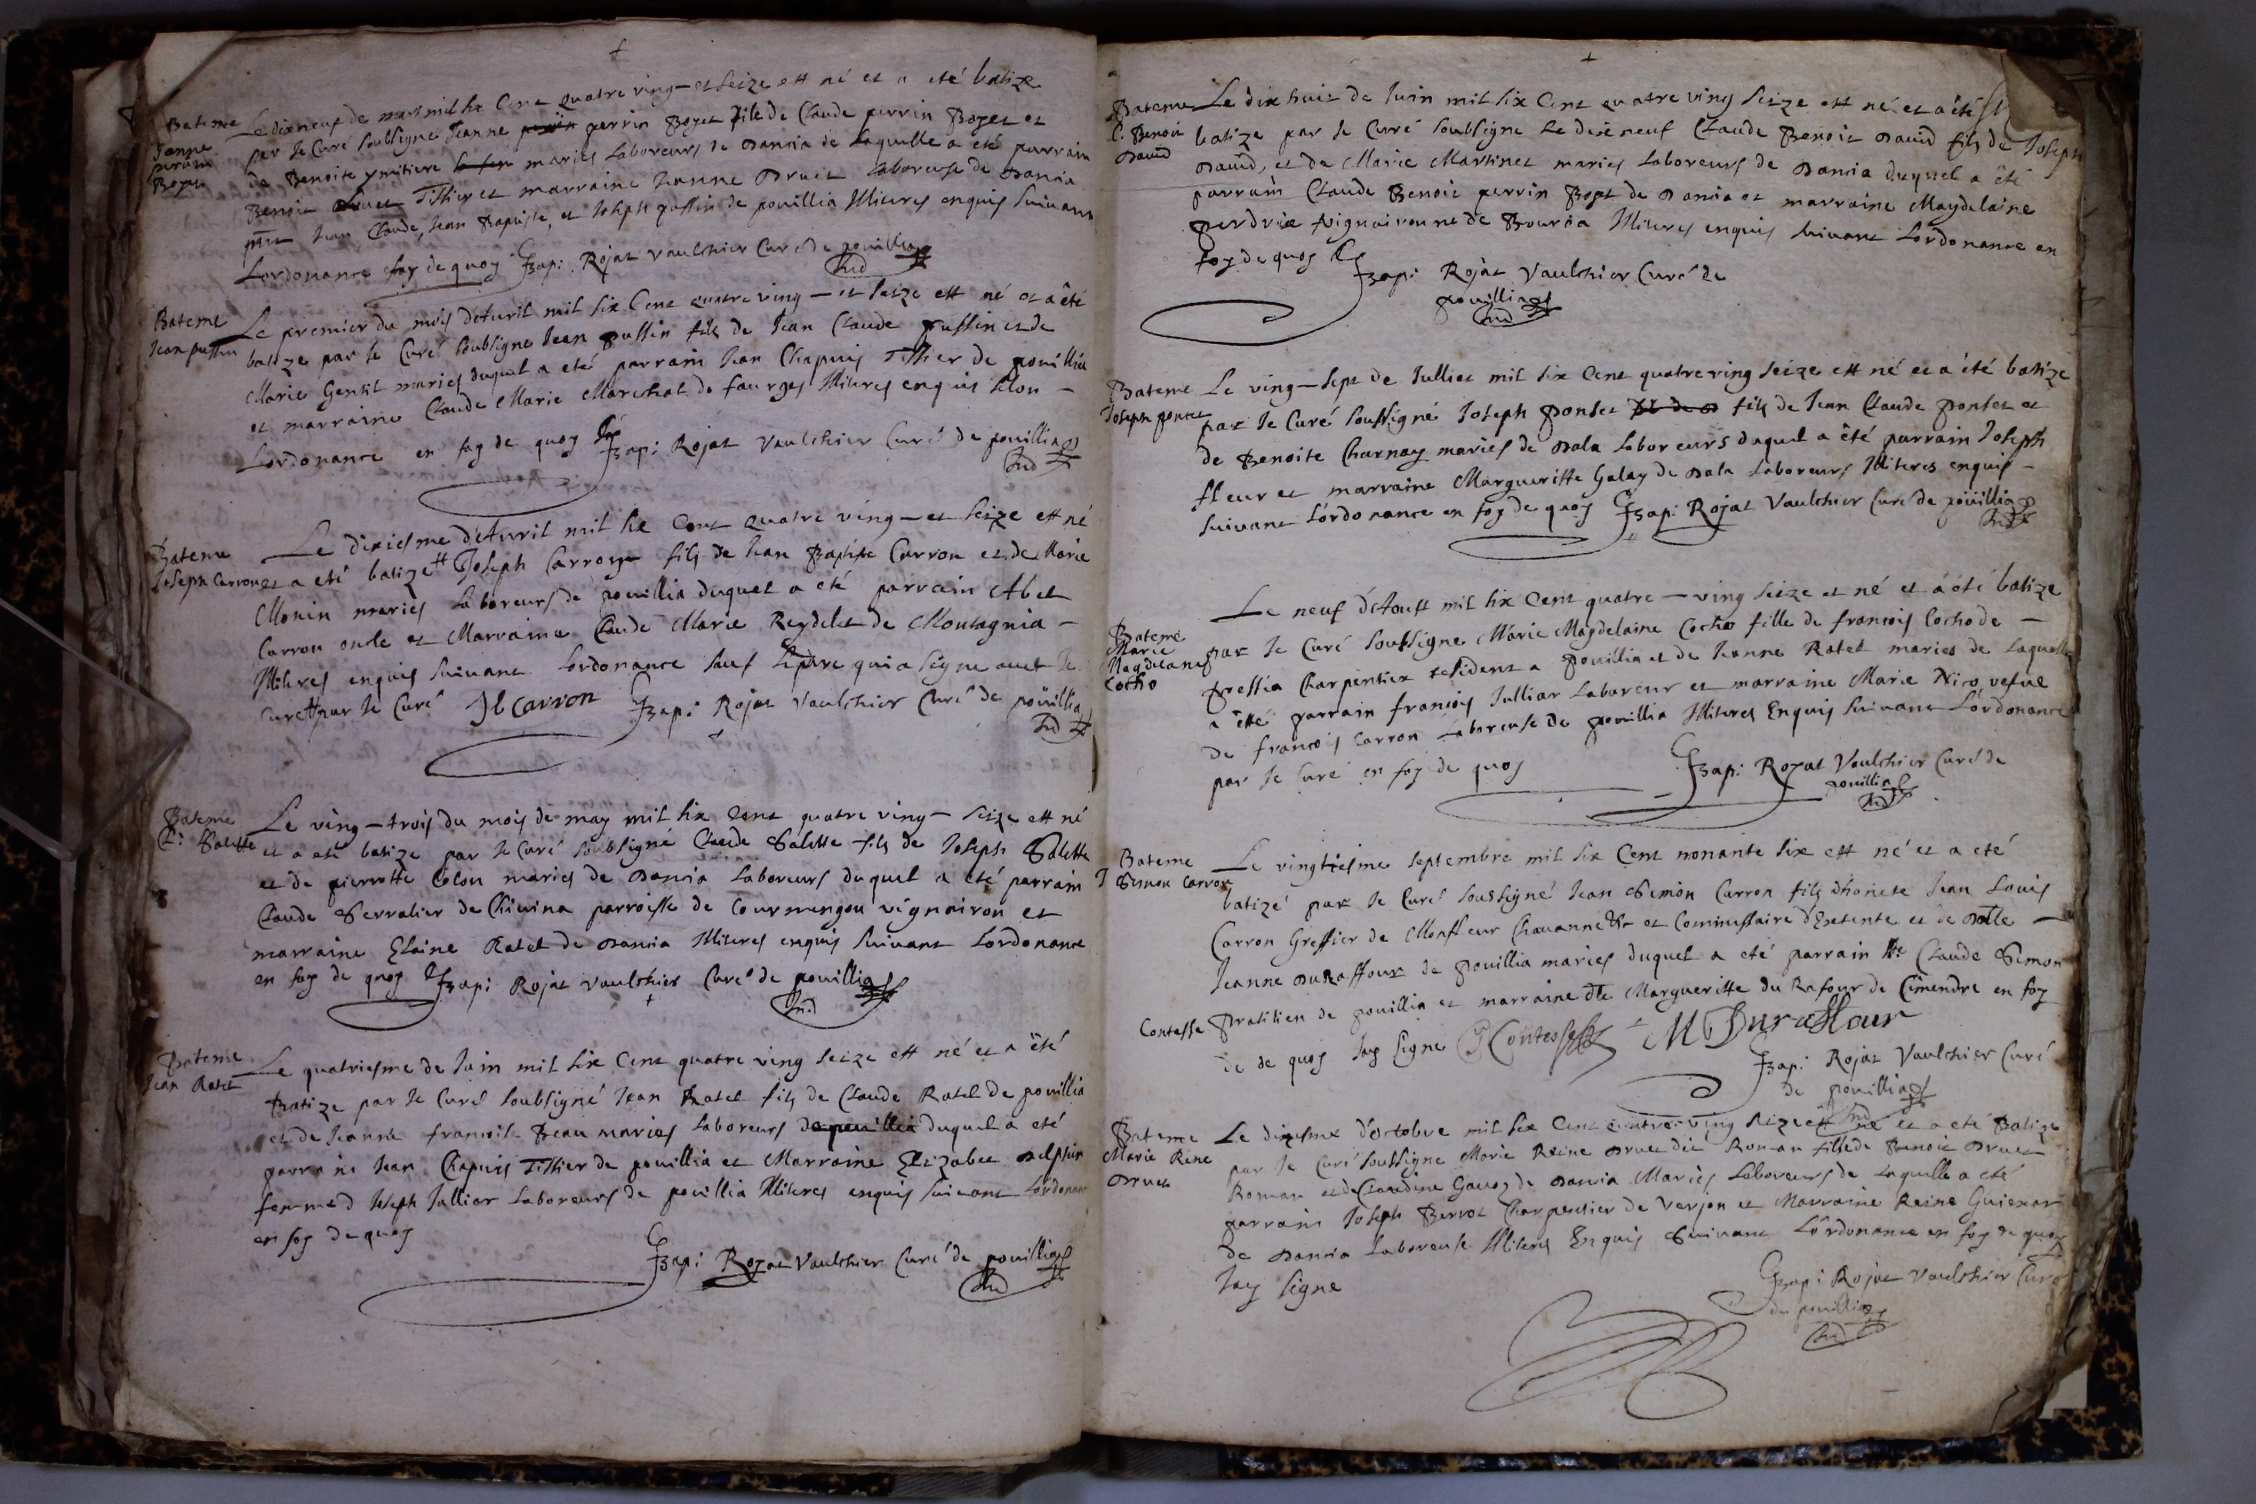 Bateme
Janne
perrin
Boyet
Le dixneuf de mars mil six Cent quatre ving et seize est né et a eté batize
par le Curé soubsigné Jeanne perrin Boyet file de Claude perrin Boyet et
de Benoite ymitiere mariés Laboreurs de Dancia de Laquelle a eté parrain
Benoit Tissier et marraine Jeanne Druet Laboreuse de Dancia
Jean Claude, Jean Baptiste, et Joseph puffin de pouillia Illiteres enquis suivant
Lordonance foy de quoy Bapi: Rojat Vaulchier Curé de pouillia
Bateme
Jean puffin
Le premier du mois dAvril mil six Cent quatre ving et seize est né et a êté
batize par le Curé soubsigne Jean puffin fils de Jean Claude puffin et de
Marie Gentil mariés duquel a eté parrain Jean Chapuis Tissier de pouillia
et marraine Claude Marie Marechal de faurges Illiteres enquis selon
Lordonance en foy de quoy Bapi: Rojat Vaulchier Curé de pouillia
Bateme
Joseph Carron
Le dixiesme dAvril mil six Cent quatre ving et seize est né
et a eté batize Joseph Carron fils de Jean Baptiste Carron et de Marie
Monin mariés Laboreurs de pouillia duquel a eté parrain Abel
Carron oncle et Marraine Claude Marie Reydelet de Montagnia
Illiteres enquis suivant Lordonance sauf le père qui a signe avec le
Curé par le Curé Jb carron Bapi: Rojat Vaulchier Curé de pouillia
Bateme
Cl: Salette
Le ving trois du mois de may mil six Cent quatre ving seize est né
et a eté batize par le Curé soubsigné Claude Salette fils de Joseph Salette
et de pierrotte Colon mariés de Dancia Laboreurs duquel a eté parrain
Claude Serralier de Chivina parroisse de Courmangou vignairon et
marraine Elaine Ratel de Dancia Illiteres enquis suivant Lordonance
en foy de quoy Bapi: Rojat Vaulchier Curé de pouillia
Bateme
Jean Ratel
Le quatriesme de Juin mil six Cent quatre ving seize est né et a êté
Batize par le Curé soubsigné Jean Ratel fils de Claude Ratel de pouillia
et de Jeanne francoise Beau mariés Laboreurs de pouillia duquel a eté
parrain Jean Chapuis Tissier de pouillia et Marraine Elizabet Delphin
femme d Joseph Julliar Laboreurs de pouillia Illiteres enquis suivant Lordonance
en foy de quoy
Bapi: Rojat Vaulchier Curé de pouillia
Bateme
C: Benoit
David
Le dix huit de Juin mil six Cent quatre ving seize est né et a êté
batize par le Curé soubsigne Le dixneuf Claude Benoit David fils de Joseph
David, et de Marie Martinet mariés Laboreurs de Dancia duquel a êté
parrain Claude Benoit perrin Boyet de Dancia et marraine Magdelaine
perdrix vignaironne de Bourcia Illiteres enquis suivant Lordonance en
foy de quoy Bapi: Rojat Vaulchier Curé de
pouillia
Bateme
Joseph ponset
Le ving sept de Julliet mil six Cent quatre ving seize est né et a été batize
par le Curé soussigné Joseph Ponset fils de Jean Claude Ponset et
de Benoite Charnay mariés de Dala Laboreurs duquel a êté parrain Joseph
fleur et marraine Margueritte Galay de Dala Laboreurs Illiteres enquis
suivant Lordonance en foy de quoy Bapi: Rojat Vaulchier Curé de pouillia
Bateme
Marie
Magdelaine
Cocho
Le neuf dAoust mil six Cent quatre ving seize et né et a été batize
par le Curé soubsigne Marie Magdelaine Cocho fille de francois Cocho de
pressia Charpentier resident a pouillia et de Jeanne Ratel mariés de Laquelle
a êtté parrain francois Julliar Laboreur et marraine Marie Nico vefve
de francois Carron Laboreuse de pouillia Illiteres Enquis suivant Lordonance
par le Curé en foy de quoy Bapi: Rojat Vaulchier Curé de
pouillia
Bateme
J Simon Carron
Le vingtiesme septembre mil six Cent nonante six est né et a eté
batizé par le Curé soussigné Jean Simon Carron fils dhonete Jean Louis
Carron Greffier de Monsieur Chavannes et Commissaire dExtente et de Dlle
Jeanne Duraffour de pouillia mariés duquel a eté parrain Mr Claude Simon
Contesse
pratitien de pouillia et marraine dlle Margueritte du Rafour de Cimendre en foy
de quoy Jay signe Contesse M Duraffour
Bapi: Rojat Vaulchier Curé
de pouillia
Bateme
Marie Rene
Druet
Le dixiesme dOctobre mil six Cent quatre ving seize est né et a eté Batize
par le Curé soubsigne Marie Reine Druet dit Roman fille de Benoit Druet
Roman et de Claudine Gavoz de Dancia Mariés Laboreurs de Laquelle a eté
parrain Joseph Berrot Charpentier de Verjon et Marraine Reine Guienar
de Dancia Laboreuse Illiteres Enquis Suivant Lordonance en foy de quoy
Jay signe
Bapi: Rojat Vaulchier Curé
de pouillia